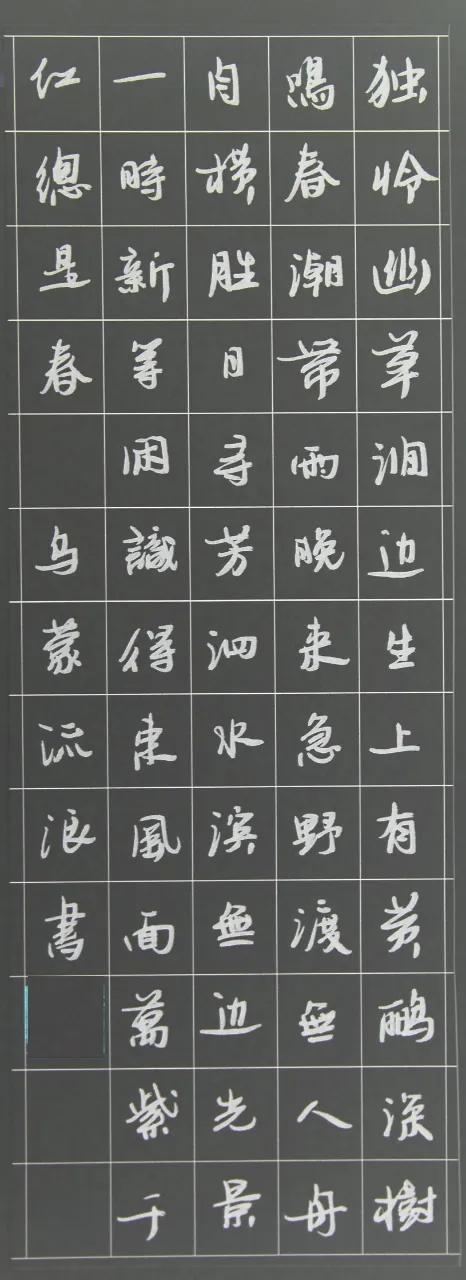 独怜幽草涧边生上有黄鹂深樹
鳴春潮带雨晚来急野渡無人舟
自横胜日寻芳泗水滨無边光景
一時新等闲識得東風面萬紫千
红總是春 乌蒙流浪書